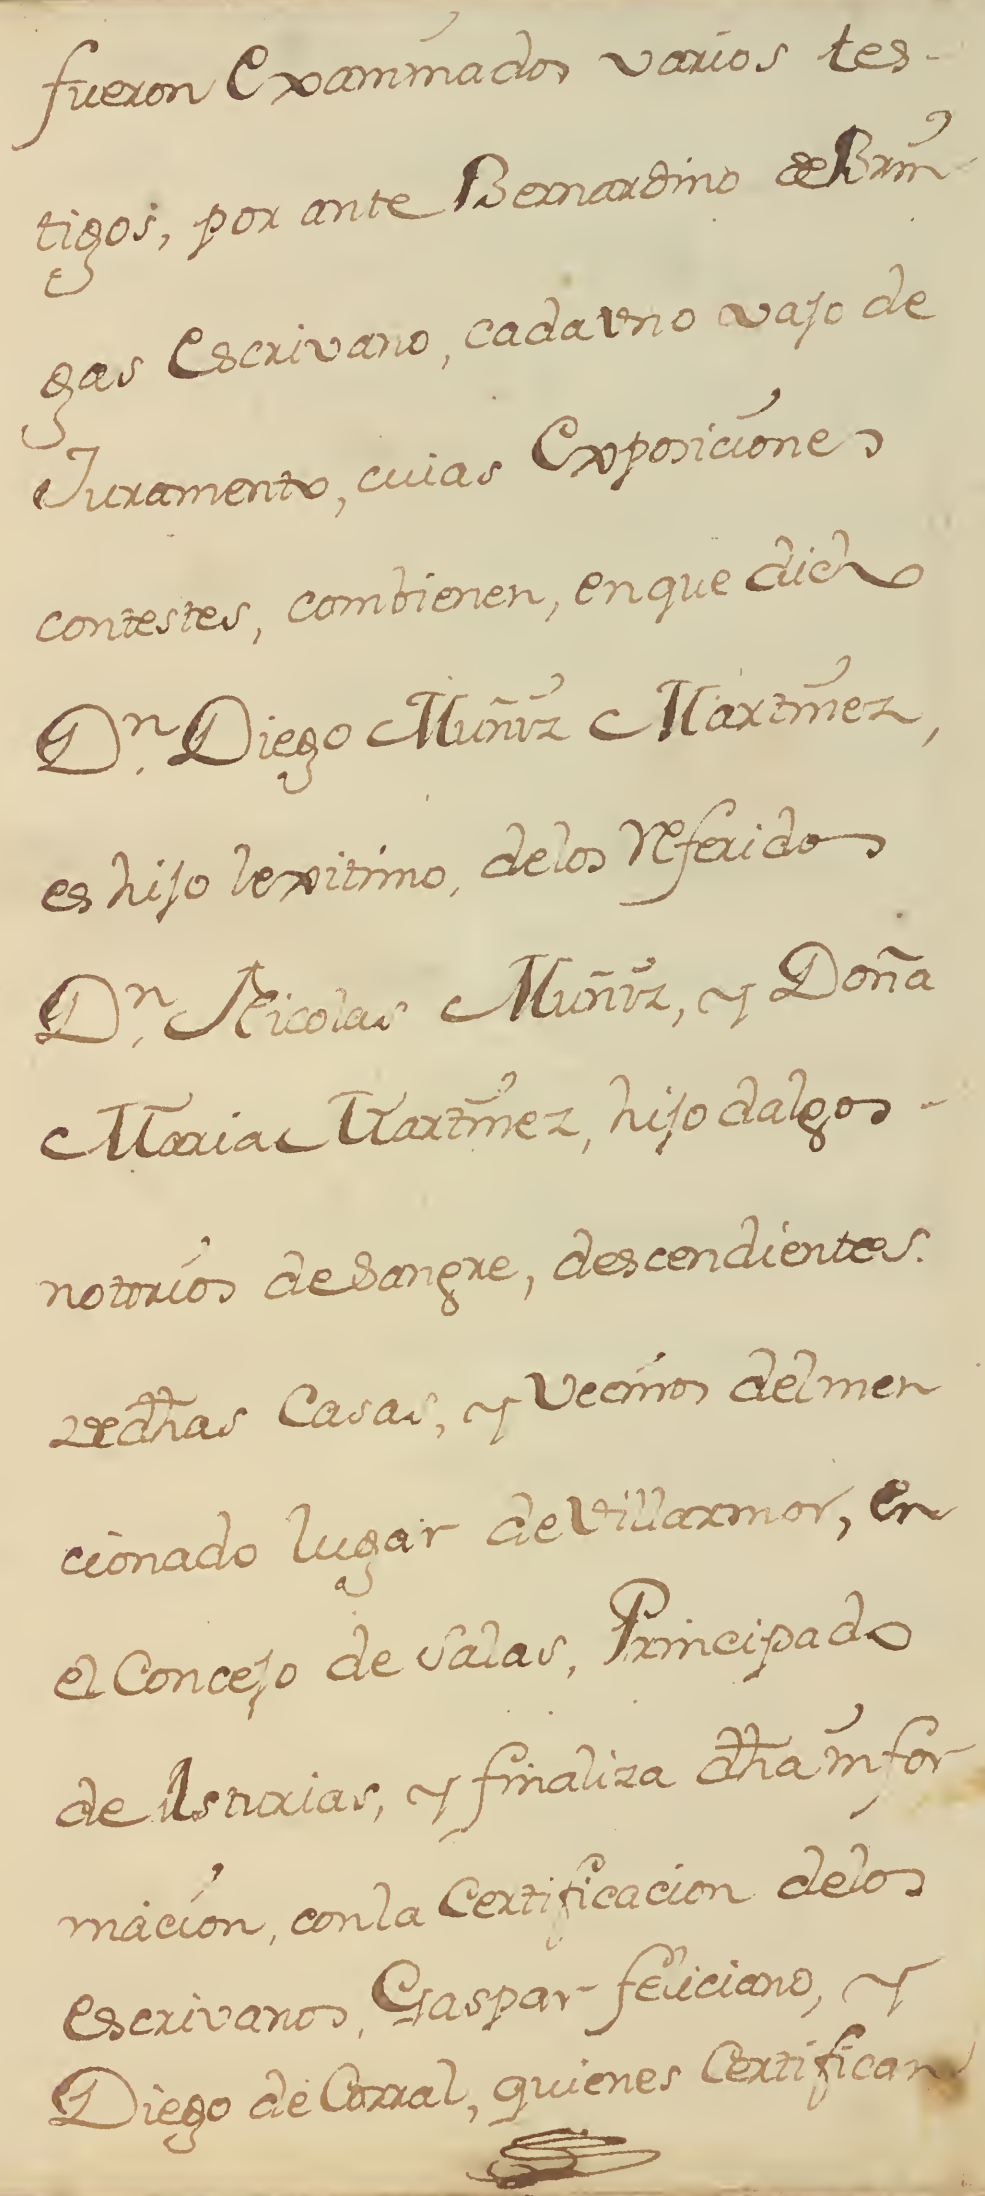 fueron Examinados varios tes-
tigos, por ante Bernardino de Brin-
gas Escrivano, cada vno vajo de
Juramento, cuias Exposiciones
contestes, combienen, en que dicho
Dn. Diego Muñiz Martinez,
es hijo lexitimo, delos referidos
Dn. Nicolas Muñiz, y Doña
Maria Martinez, hijodalgos -
notorios de Sangre, descendientes.
de dhas Casas, y Vecinos del men
cionado lugar de Villarmor, en
el Concejo de Salas, Principado
de Asturias, y finaliza dha infor
macion, con la Certificacion delos
escrivanos, Gaspar feliciano, y
Diego de Corral, quienes Certifican